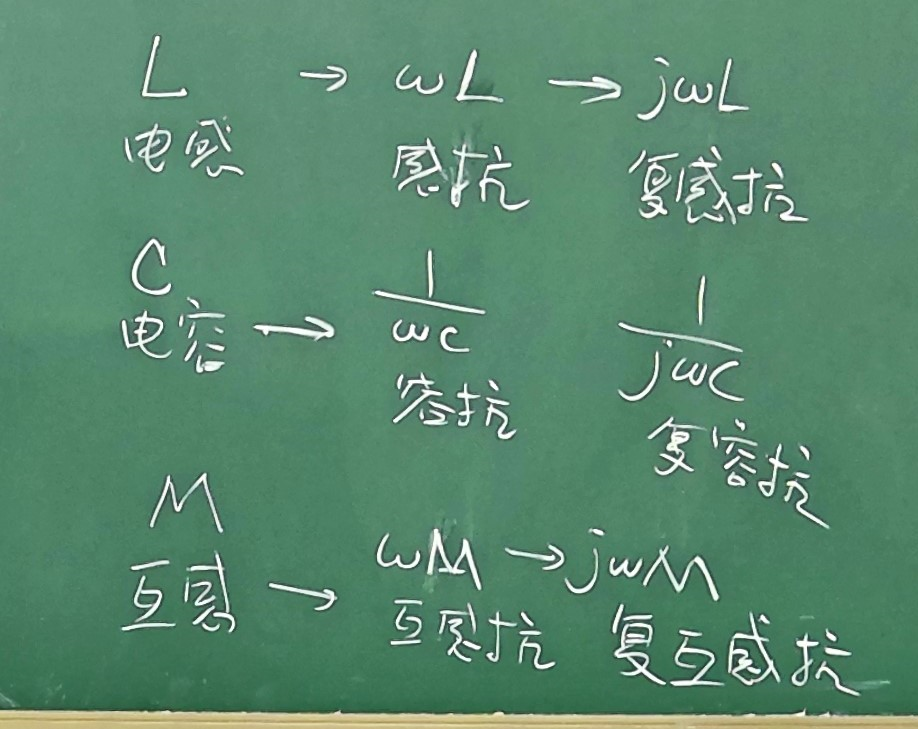 L → ωL → jωL
电感 感抗 复感抗
C 1/ωc 1/jωc
电容 → 容抗 复容抗
M ωM → jωM
互感 → 互感抗 复互感抗